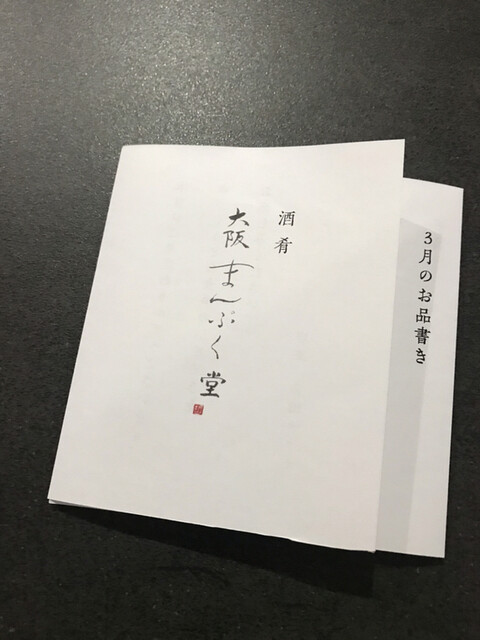 酒肴
大阪まんぷく堂
3月のお品書き